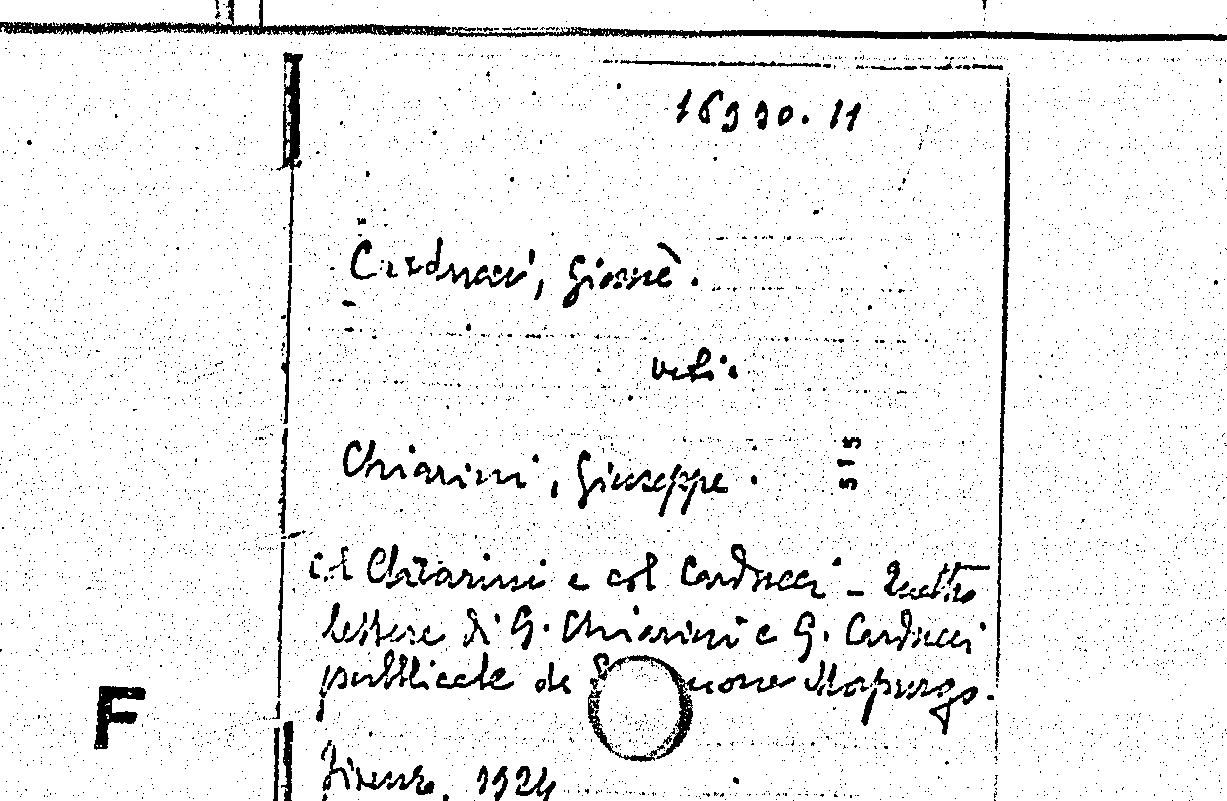 16990.11
Carducci, Giosuè.
vedi.
Chiarini, Giuseppe.
515
Col Chiarini e col Carducci - Quattro
lettere di G. Chiarini e G. Carducci
pubblicate da Morpurgo.
F
Firenze, 1924